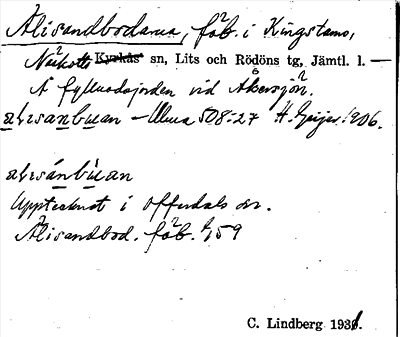 Älisandbodarna, fäb. i Kingstamo,
Näskotts Kyrkås sn, Lits och Rödöns tg, Jämtl. l. —
Å fyllnadsjorden vid Åkersjön.
— Ulma 508:27 H. Geijer 1906.
Upptecknat i Offerdals sn.
Älisandbod. fäb. 59
C. Lindberg 1931.